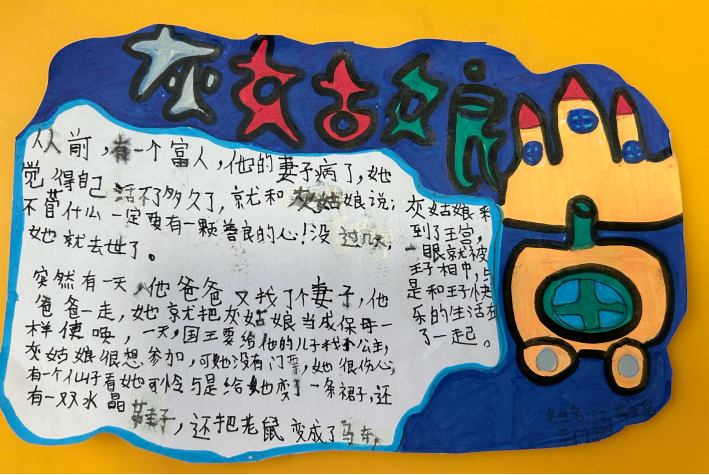 灰姑娘
从前,有一个富人,他的妻子病了,她
觉得自己活不了多久了,就和灰姑娘说:
不管什么一定要有一颗善良的心!没过几天,
她就去世了。
突然有一天,他爸爸又找了个妻子,他
爸爸一走,她就把灰姑娘当成保母一
样使唤,一天,国王要给他的儿子找个公主,
灰姑娘很想参加,可她没有门票,她很伤心,
有一个仙子看她可怜与是给她变了一条裙子,还
有一双水晶鞋子,还把老鼠变成了马车,
灰姑娘来
到了王宫,
一眼就被
王子相中,与
是和王子快
乐的生活在
了一起。
姓名:江